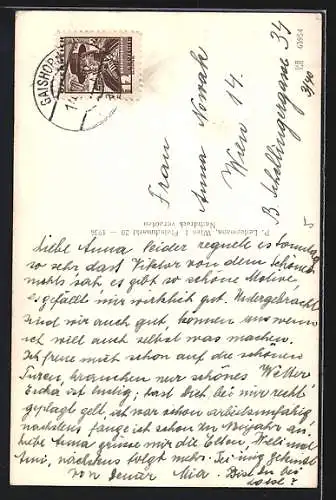 GAISHOR
Frau
Anna Nowak
Wien 14.
B. Schellingergasse 34
3/40
P. Ledermann, Wien I, Fleischmarkt 20 — 1936
Nachdruck verboten
65954
Liebe Anna Leider regnete es Sonntag
so sehr dass Viktor von dem Schönen
nichts sah, es gibt so schöne Motive,
es gefällt mir wirklich gut. Untergebracht
sind wir auch gut, können uns wenn
ich will auch selbst was machen.
Ich freue mich schon auf die schönen
Turen, brauchen nur schönes Wetter
ist lustig; hast Dich bei mir recht
geplagt gelt, ich war schon arbeitsunfähig
nächstens fange ich schon
liebe Anna grüsse mir die Eltern, Willi und
nächstens folgt mehr. Sei innig geküsst
von Deiner Mia. Bist Du bei